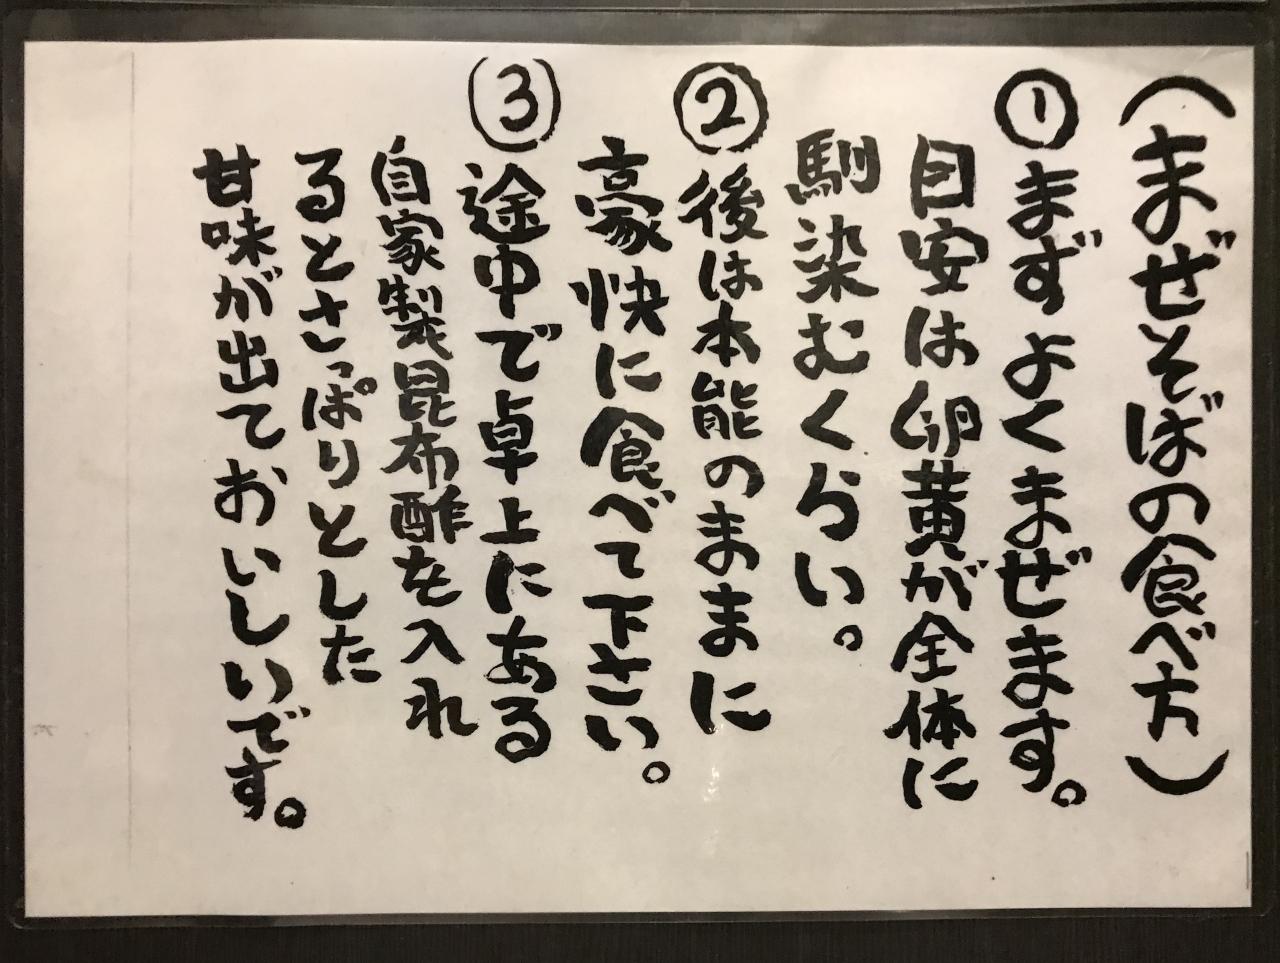 (まぜそばの食べ方)
①まずよくまぜます。
目安は卵黄が全体に
馴染むくらい。
②後は本能のままに
豪快に食べて下さい。
③途中で卓上にある
自家製昆布酢を入れ
るとさっぱりとした
甘味が出ておいしいです。